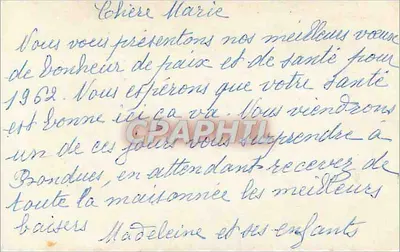 Chère Marie
Nous vous présentons nos meilleurs vœux
de bonheur de paix et de santé pour
1962. Nous espérons que votre santé
est bonne ici ça va. Nous viendrons
un de ces jours vous surprendre a
Bondues, en attendant recevez de
toute la maisonnée les meilleurs
baisers Madeleine et ses enfants
CPAPHIL